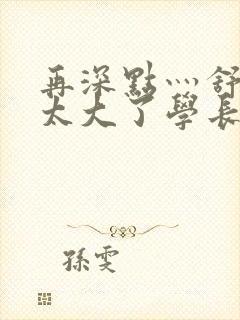 再深點灬舒
太大了學長
孫雯